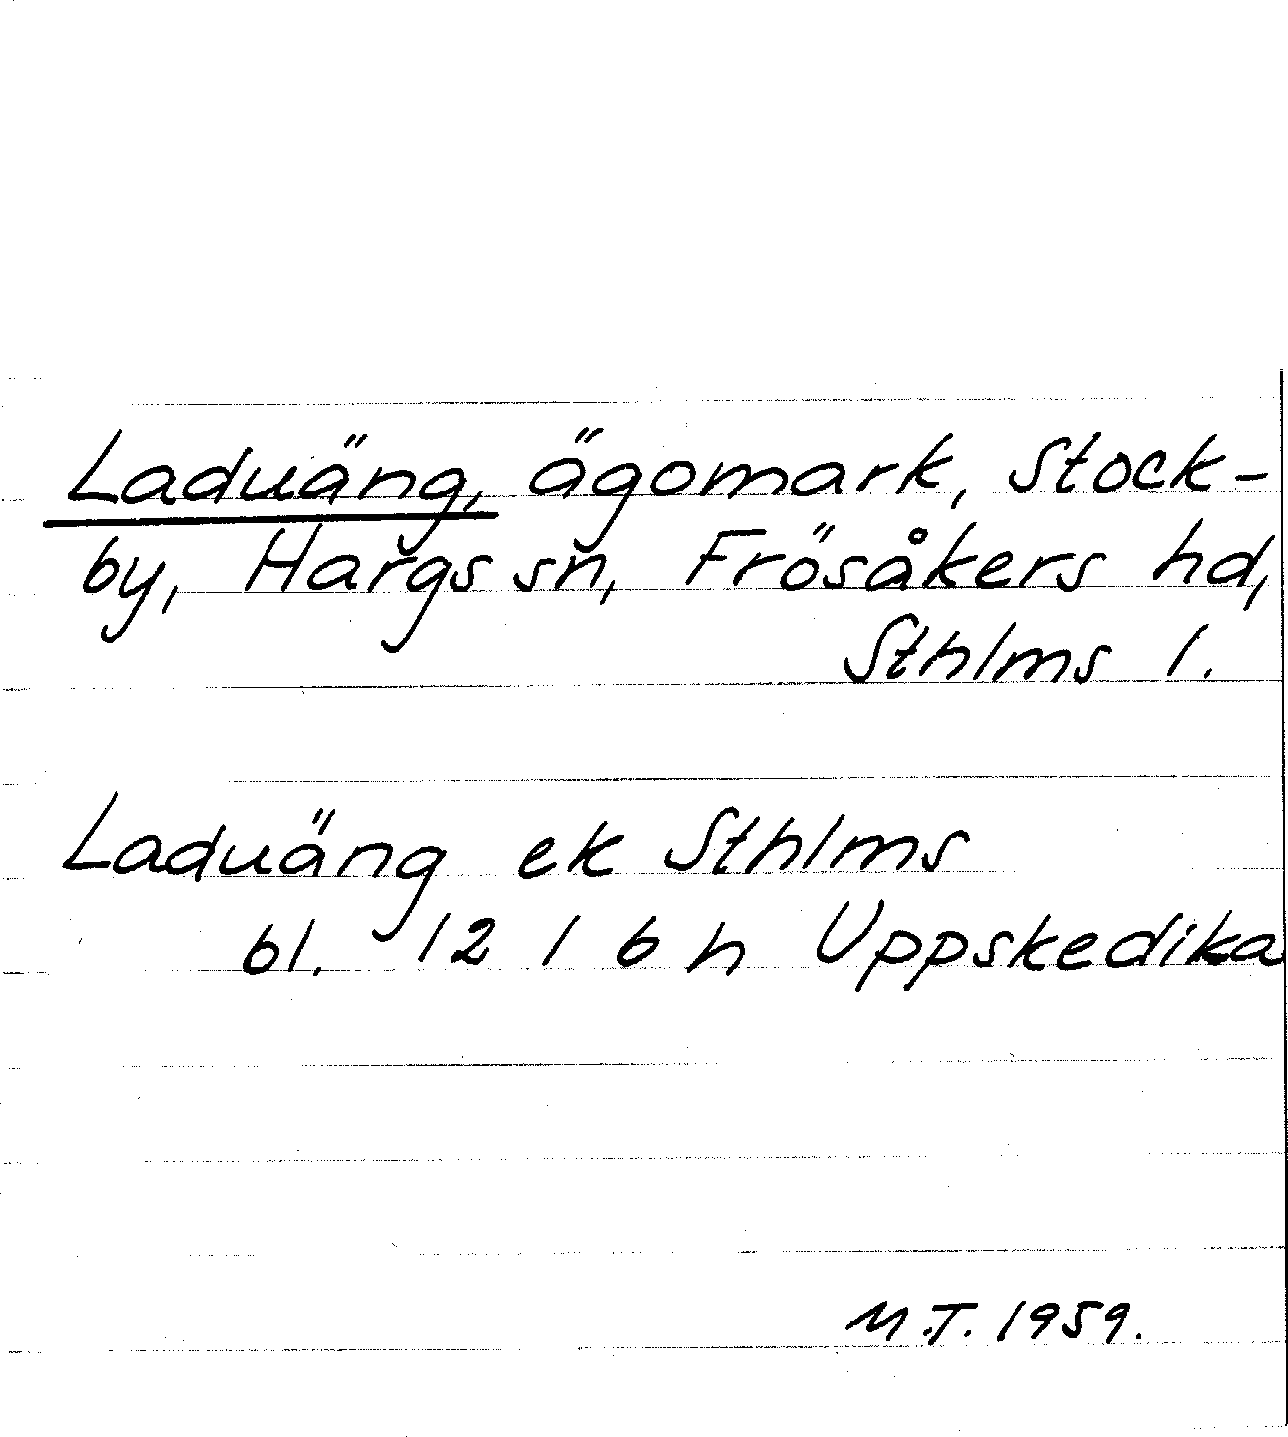 Laduäng, ägomark, Stock-
by, Hargs sn, Frösåkers hd,
Sthlms l.
Laduäng ek Sthlms
bl. 12 1 6 h Uppskedika
M.T. 1959.